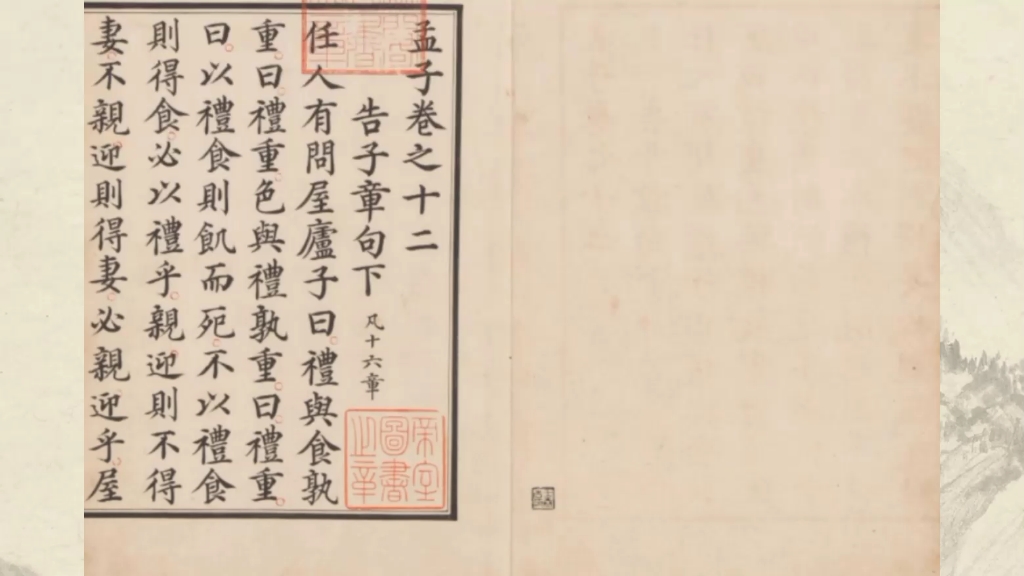 孟子卷之十二
告子章句下 凡十六章
任人有問屋廬子曰禮與食孰
重曰禮重色與禮孰重曰禮重
曰以禮食則飢而死不以禮食
則得食必以禮乎親迎則不得
妻不親迎則得妻必親迎乎屋
帝室圖書之章